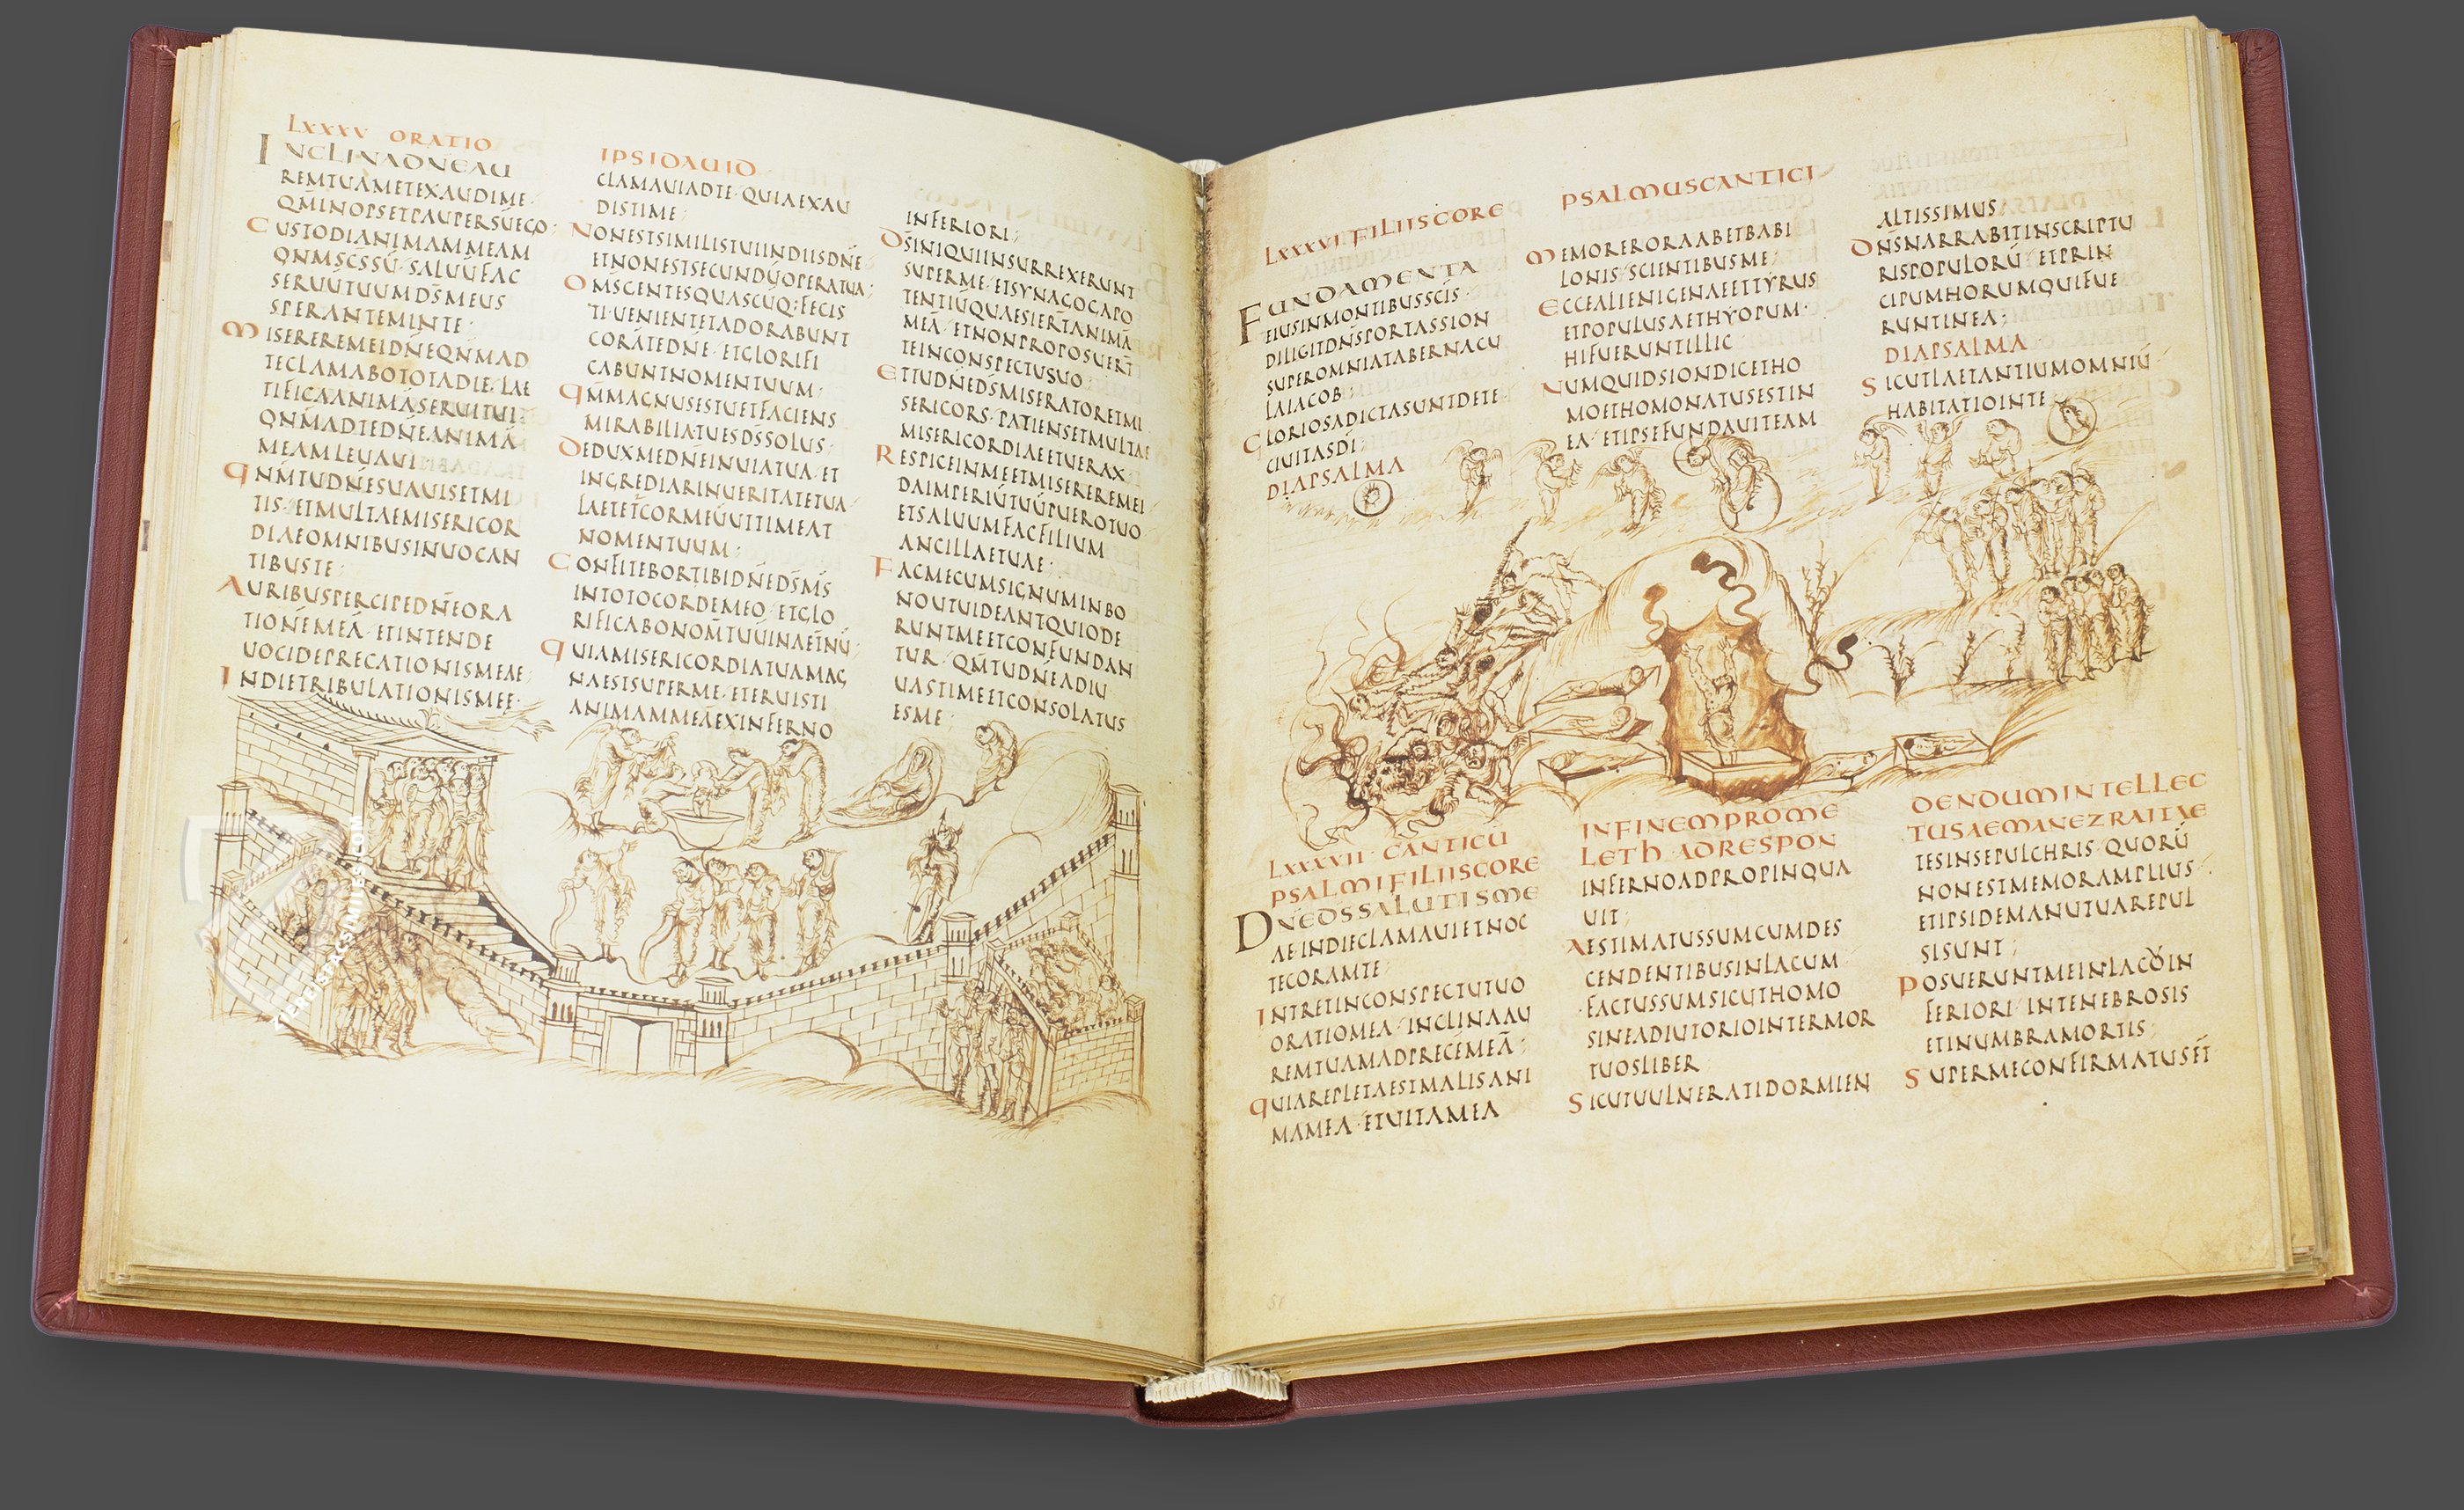 LXXXV ORATIO
INCLINADNEAU
REMTUAMETEXAUDIME·
QM̄INOPSETPAUPERSUEGO;
CUSTODIANIMAMMEAM
QNMSCSSŪ· SALUŪFAC
SERUŪTUUMDS̄MEUS
SPERANTEMINTE;
MISEREREMEIDNĒQNMAD
TECLAMABOTOTADIE· LAE
TIFICAANIMĀSERUITUI·
QNMADTEDNĒANIMĀ
MEAMLEUAUI
QNMTUDNĒSUAUISETMI
TIS· ETMULTAEMISERICOR
DIAEOMNIBUSINUOCAN
TIBUSTE;
AURIBUSPERCIPEDNĒORA
TIONĒMEĀ· ETINTENDE
UOCIDEPRECATIONISMEAE;
INDIETRIBULATIONISMEE·
IPSIDAUID
CLAMAUIADTE· QUIAEXAU
DISTIME;
NONESTSIMILISTUIINDIISDNĒ
ETNONESTSECUNDŪOPERATUA;
OMSGENTESQUASCŪQ:FECIS
TI· UENIENTETADORABUNT
CORĀTEDNĒ· ETGLORIFI
CABUNTNOMENTUUM;
QMMAGNUSESTUETFACIENS
MIRABILIATUESDS̄SOLUS;
DEDUXMEDNEINUIATUA· ET
INGREDIARINUERITATETUA·
LAETET̄CORMEŪUTTIMEAT
NOMENTUUM;
CONFITEBORTIBIDNĒDS̄MS̄
INTOTOCORDEMEO· ETGLO
RIFICABONOM̄TUŪINAET̄NŪ;
QUIAMISERICORDIATUAMAG
NAESTSUPERME· ETERUISTI
ANIMAMMEĀEXINFERNO
INFERIORI;
DS̄INIQUIINSURREXERUNT
SUPERME· ETSYNAGOGAPO
TENTIŪQUAESIERT̄ANIMĀ
MEĀ· ETNONPROPOSUERT̄
TEINCONSPECTUSUO;
ETTUDNĒDS̄MISERATORETMI
SERICORS· PATIENSETMULTAE
MISERICORDIAEETUERAX·
RESPICEINMEETMISEREREMEI·
DAIMPERIŪTUŪPUEROTUO
ETSALUUMFACFILIUM
ANCILLAETUAE;
FACMECUMSIGNUMINBO
NOUTUIDEANTQUIODE
RUNTMEETCONFUNDAN
TUR· QM̄TUDNĒADIU
UASTIMEETCONSOLATUS
ESME;
LXXXVI FILIISCORE
FUNDAMENTA
EIUSINMONTIBUSSCĪS·
DILIGITDNS̄PORTASSION
SUPEROMNIATABERNACU
LAIACOB;
GLORIOSADICTASUNTDETE·
CIUITASDĪ;
DIAPSALMA
PSALMUSCANTICI
MEMORERORAABETBABI
LONIS· SCIENTIBUSME;
ECCEALIENIGENAEETTYRUS
ETPOPULUSAETHYOPUM·
HIFUERUNTILLIC
NUMQUIDSIONDICETHO
MOETHOMONATUSESTIN
EA· ETIPSEFUNDAUITEAM
ALTISSIMUS
DNS̄NARRABITINSCRIPTU
RISPOPULORŪ· ETPRIN
CIPUMHORUMQUIFUE
RUNTINEA;
DIAPSALMA
SICUTLAETANTIUMOMNIŪ
HABITATIOINTE
LXXXVII CANTICŪ
PSALMIFILIISCORE
DNĒDSSALUTISME
AE· INDIECLAMAUIETNOC
TECORAMTE;
INTRETINCONSPECTUTUO
ORATIOMEA· INCLINAAU
REMTUAMADPRECEMEĀ;
QUIAREPLETAESTMALISANI
MAMEA· ETUITAMEA
INFINEMPROME
LETH· ADRESPON
INFERNOADPROPINQUA
UIT;
AESTIMATUSSUMCUMDES
CENDENTIBUSINLACUM·
FACTUSSUMSICUTHOMO
SINEADIUTORIOINTERMOR
TUOSLIBER
SICUTUULNERATIDORMIEN
DENDUMINTELLEC
TUSAEMANEZRAITAE
TESINSEPULCHRIS· QUORŪ
NONESTMEMORAMPLIUS·
ETIPSIDEMANUTUAREPUL
SISUNT;
POSUERUNTMEINLACOIN
FERIORI· INTENEBROSIS
ETINUMBRAMORTIS;
SUPERMECONFIRMATUSET̄
51